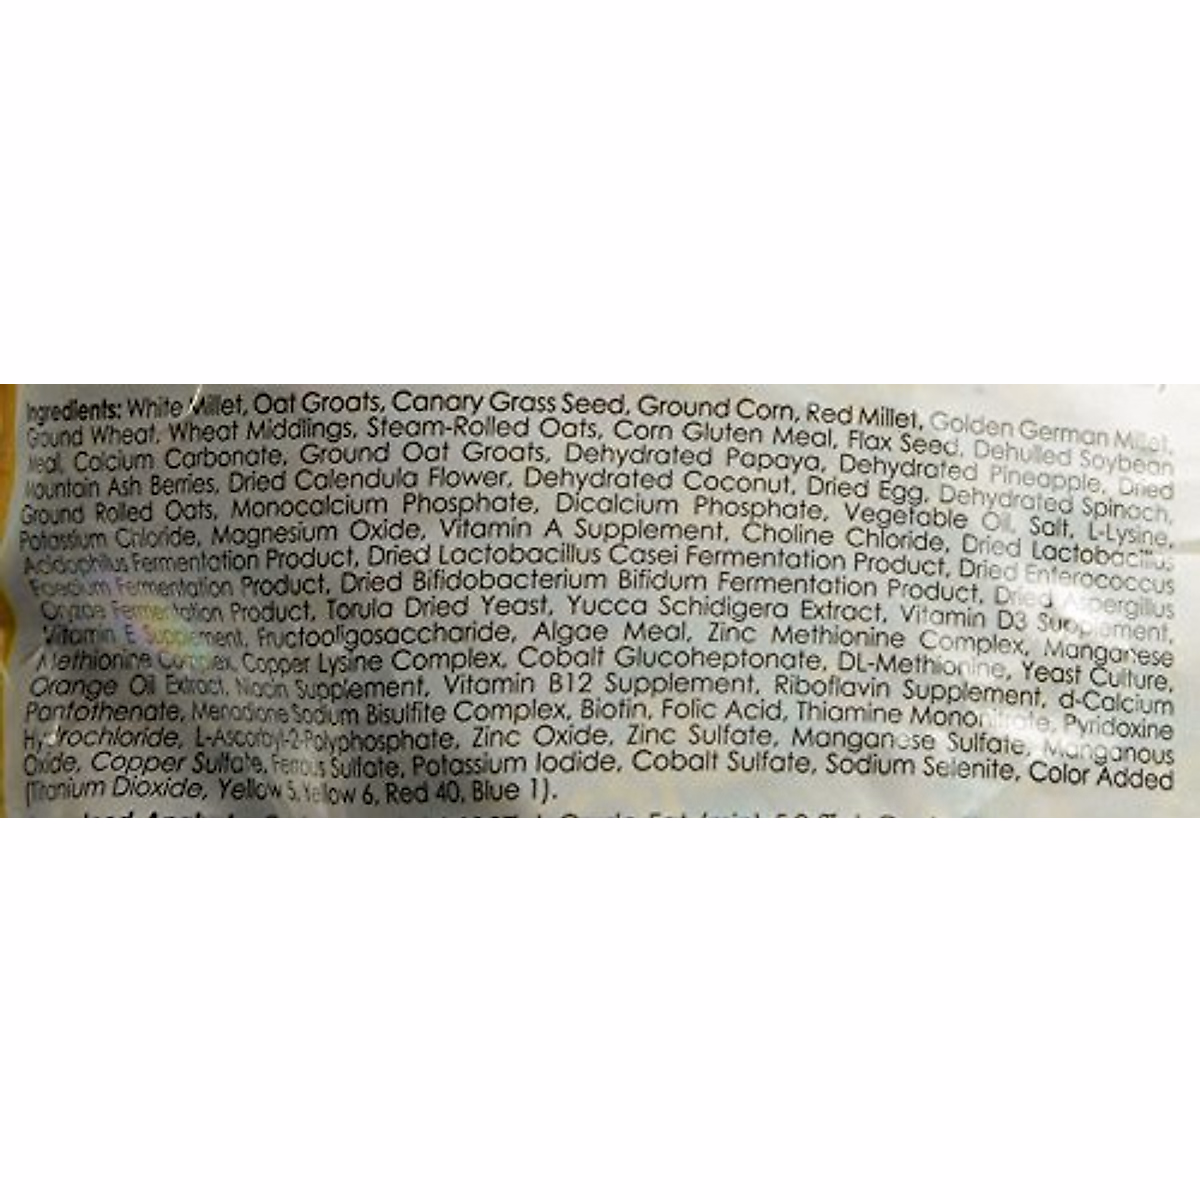 Ingredients: White Millet, Oat Groats, Canary Grass Seed, Ground Corn, Red Millet, Golden German Millet,
Ground Wheat, Wheat Middlings, Steam-Rolled Oats, Corn Gluten Meal, Flax Seed, Dehulled Soybean
Meal, Calcium Carbonate, Ground Oat Groats, Dehydrated Papaya, Dehydrated Pineapple, Dried
Mountain Ash Berries, Dried Calendula Flower, Dehydrated Coconut, Dried Egg, Dehydrated Spinach,
Ground Rolled Oats, Monocalcium Phosphate, Dicalcium Phosphate, Vegetable Oil, Salt, L-Lysine,
Potassium Chloride, Magnesium Oxide, Vitamin A Supplement, Choline Chloride, Dried Lactobacillus
Acidophilus Fermentation Product, Dried Lactobacillus Casei Fermentation Product, Dried Enterococcus
Faecium Fermentation Product, Dried Bifidobacterium Bifidum Fermentation Product, Dried Aspergillus
Oryzae Fermentation Product, Torula Dried Yeast, Yucca Schidigera Extract, Vitamin D3 Supplement,
Vitamin E Supplement, Fructooligosaccharide, Algae Meal, Zinc Methionine Complex, Manganese
Methionine Complex, Copper Lysine Complex, Cobalt Glucoheptonate, DL-Methionine, Yeast Culture,
Orange Oil Extract, Niacin Supplement, Vitamin B12 Supplement, Riboflavin Supplement, d-Calcium
Pantothenate, Menadione Sodium Bisulfite Complex, Biotin, Folic Acid, Thiamine Mononitrate, Pyridoxine
Hydrochloride, L-Ascorbyl-2-Polyphosphate, Zinc Oxide, Zinc Sulfate, Manganese Sulfate, Manganous
Oxide, Copper Sulfate, Ferrous Sulfate, Potassium Iodide, Cobalt Sulfate, Sodium Selenite, Color Added
(Titanium Dioxide, Yellow 5, Yellow 6, Red 40, Blue 1).